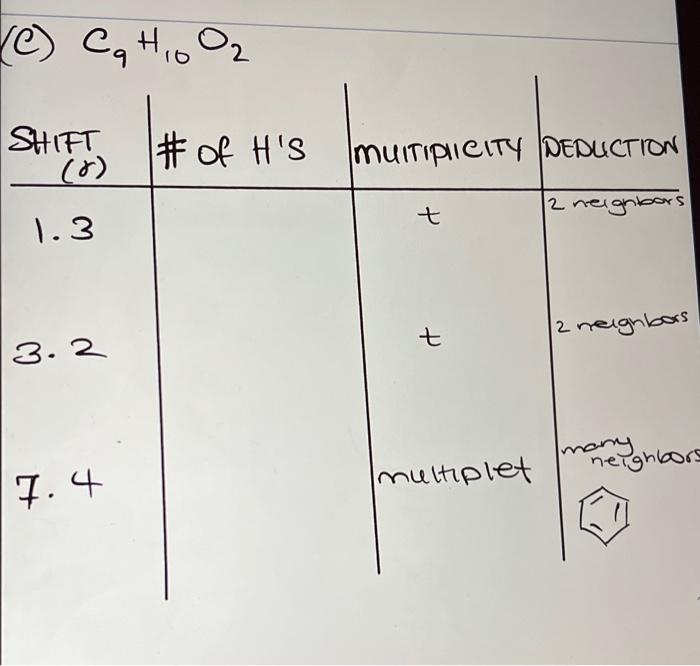 (C) C₉ H₁₀ O₂
SHIFT (δ) # of H'S MULTIPLICITY DEDUCTION
1.3 t 2 neighbors
3.2 t 2 neighbors
7.4 multiplet many neighbors